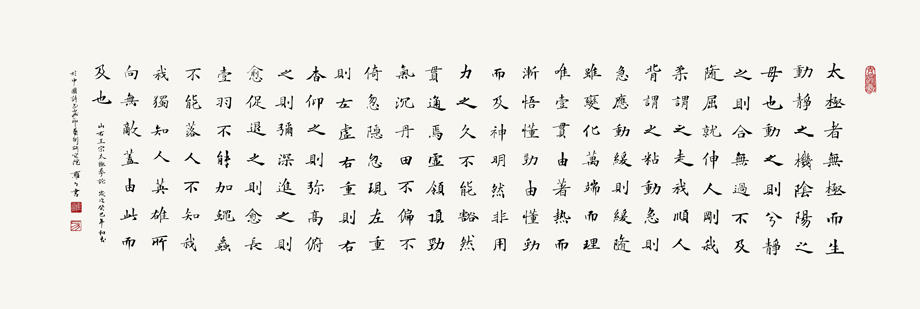 太極者無極而生
動靜之機陰陽之
母也動之則分靜
之則合無過不及
隨屈就伸人剛我
柔謂之走我順人
背謂之粘動急則
急應動緩則緩隨
雖變化萬端而理
唯壹貫由著熟而
漸悟懂勁由懂勁
而及神明然非用
力之久不能豁然
貫通焉虛領頂勁
氣沉丹田不偏不
倚忽隱忽現左重
則左虛右重則右
杳仰之則弥高俯
之則彌深進之則
愈促退之則愈長
壹羽不能加蠅蟲
不能落人不知我
我獨知人英雄所
向無敵蓋由此而
及也
山右王宗太極拳論 歲次癸巳年
於中國詩書畫印藝術研究院 書